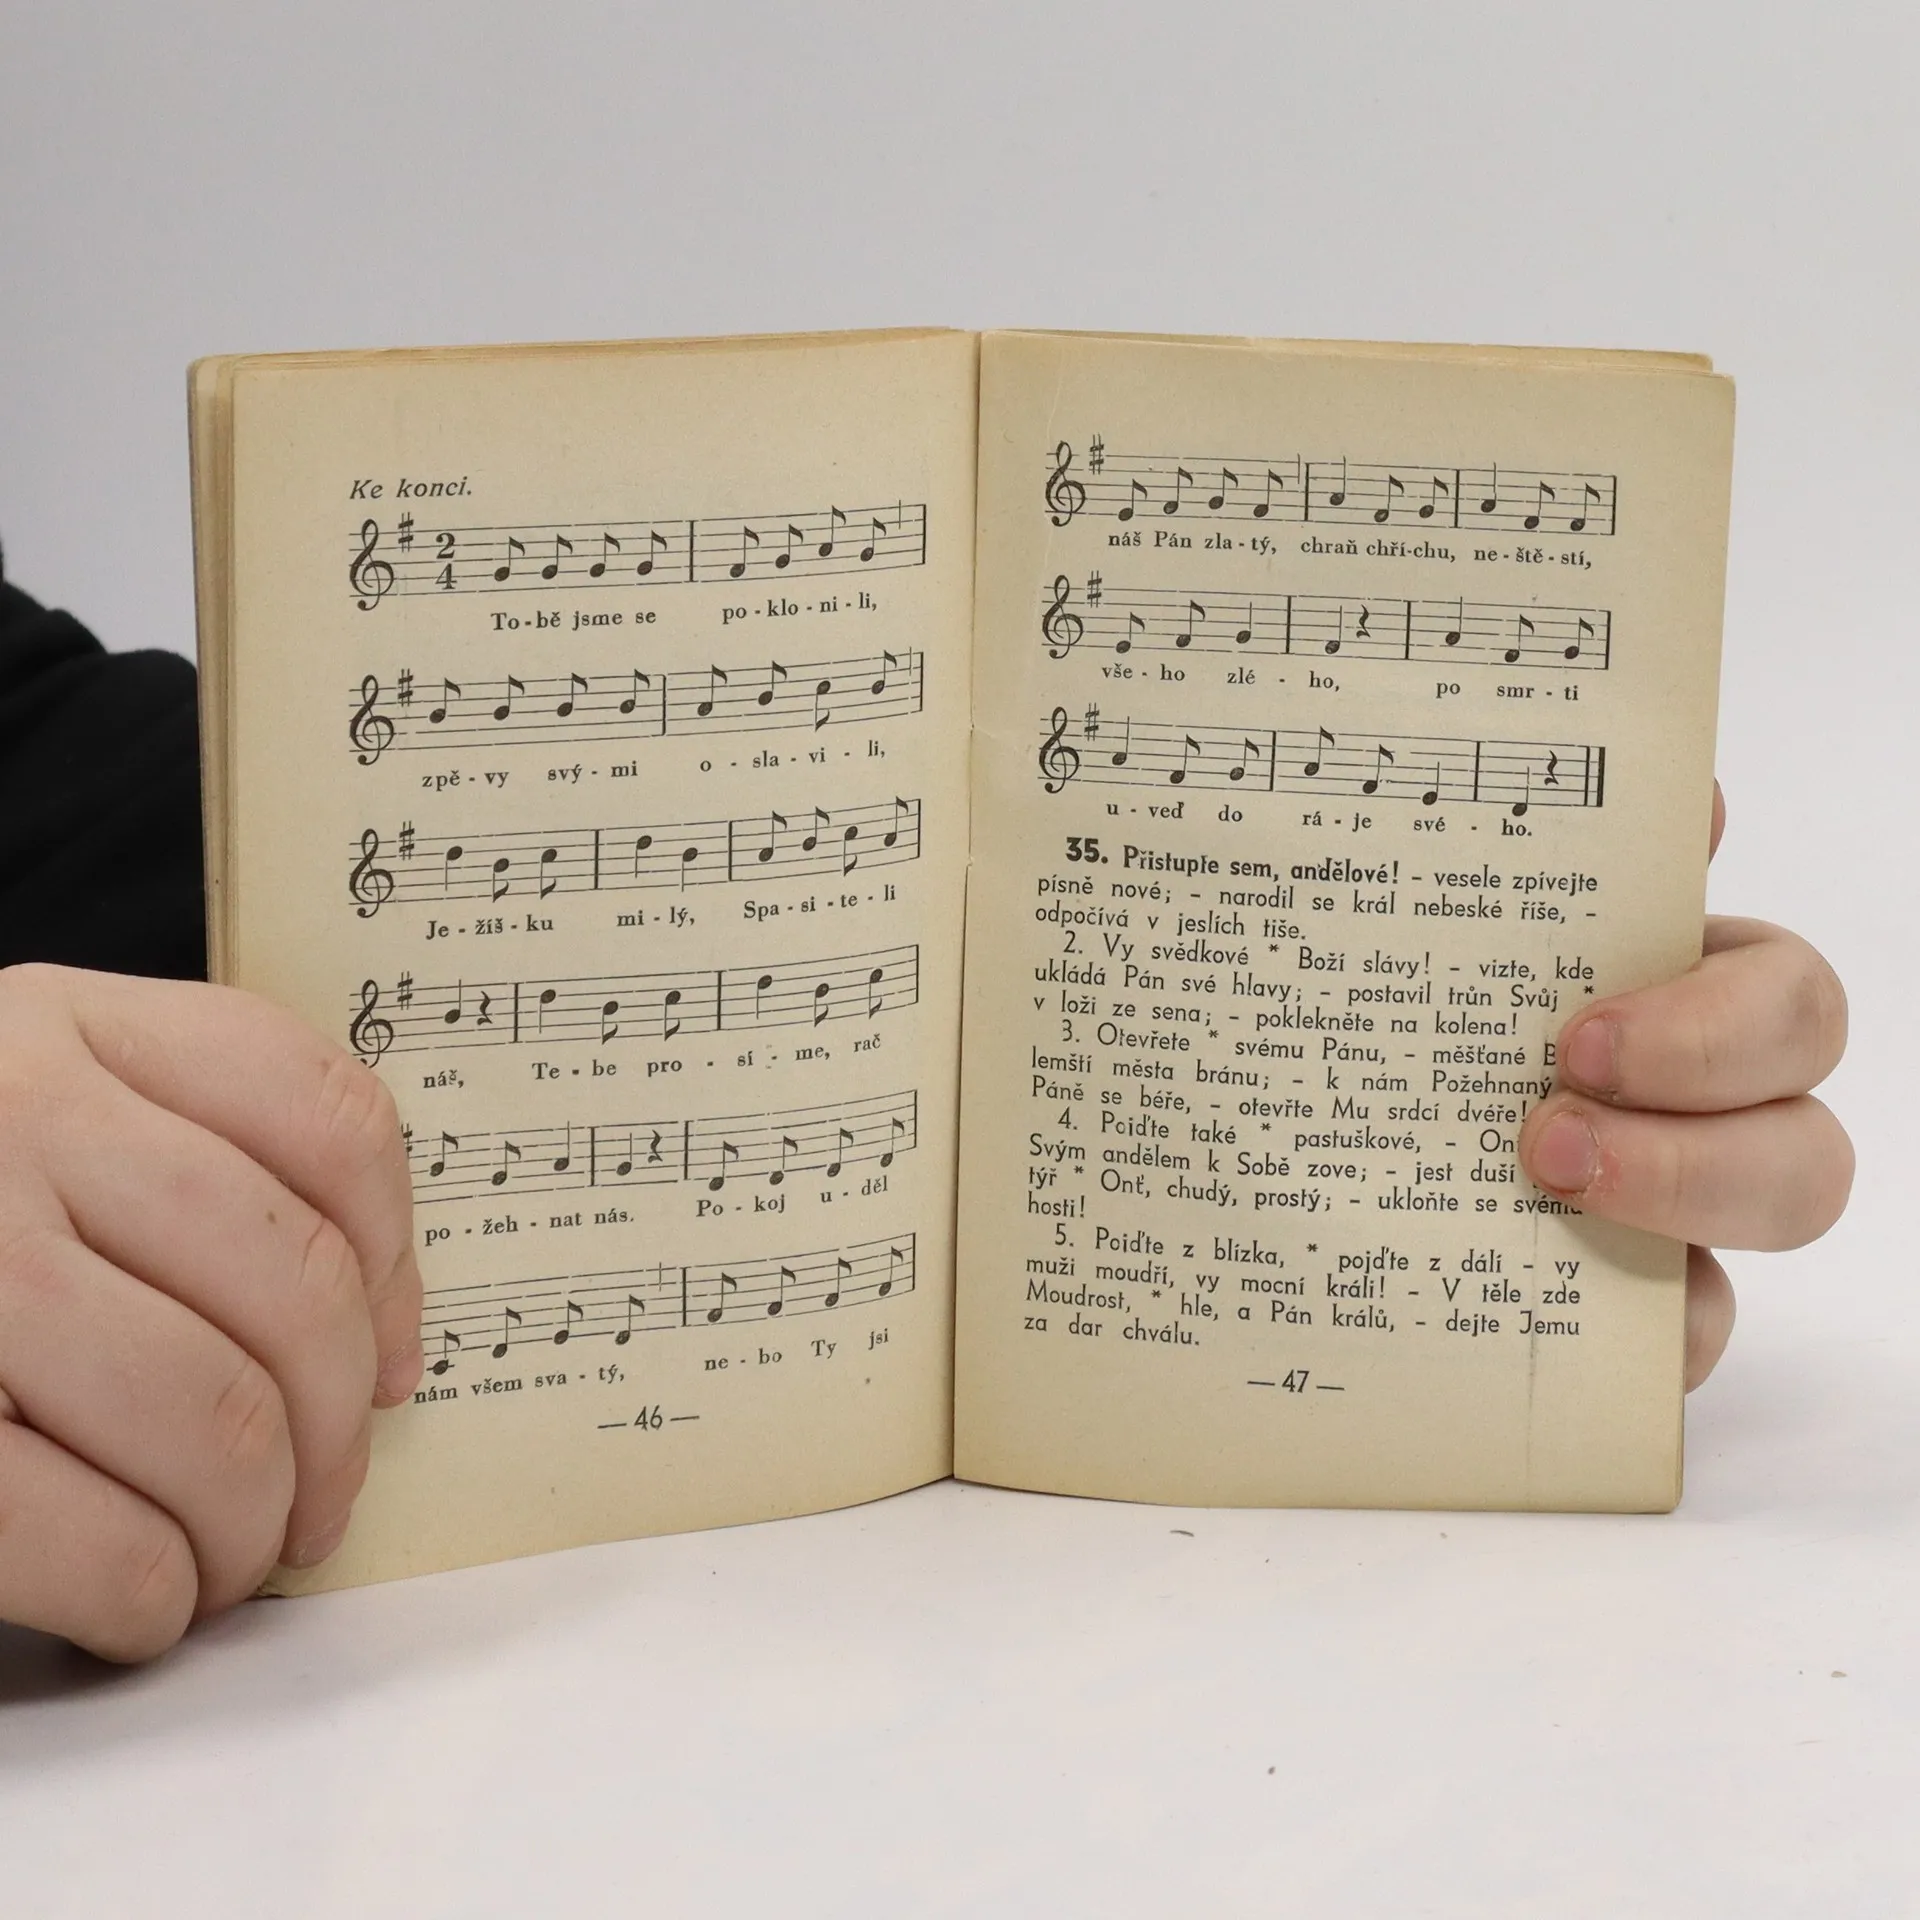 Ke konci.
2
4
To-bě jsme se po-klo-ni-li,
zpě-vy svý-mi o-sla-vi-li,
Je-žíš-ku mi-lý, Spa-si-te-li
náš, Te-be pro-sí-me, rač
po-žeh-nat nás. Po-koj u-děl
nám všem sva-tý, ne-bo Ty jsi
— 46 —
náš Pán zla-tý, chraň chří-chu, ne-ště-stí,
vše-ho zlé-ho, po smr-ti
u-veď do rá-je své-ho.
35. Přistupte sem, andělové! – vesele zpívejte
písně nové; – narodil se král nebeské říše, –
odpočívá v jeslích tiše.
2. Vy svědkové * Boží slávy! – vizte, kde
ukládá Pán své hlavy; – postavil trůn Svůj *
v loži ze sena; – poklekněte na kolena!
3. Otevřete * svému Pánu, – měšťané
lemští města bránu; – k nám Požehnaný
Páně se béře, – otevřte Mu srdcí dvéře!
4. Pojďte také * pastuškové, –
Svým andělem k Sobě zove; – jest duší
týř * Onť, chudý, prostý; – ukloňte se svému
hosti!
5. Pojďte z blízka, * pojďte z dálí – vy
muži moudří, vy mocní králi! – V těle zde
Moudrost, * hle, a Pán králů, – dejte Jemu
za dar chválu.
— 47 —